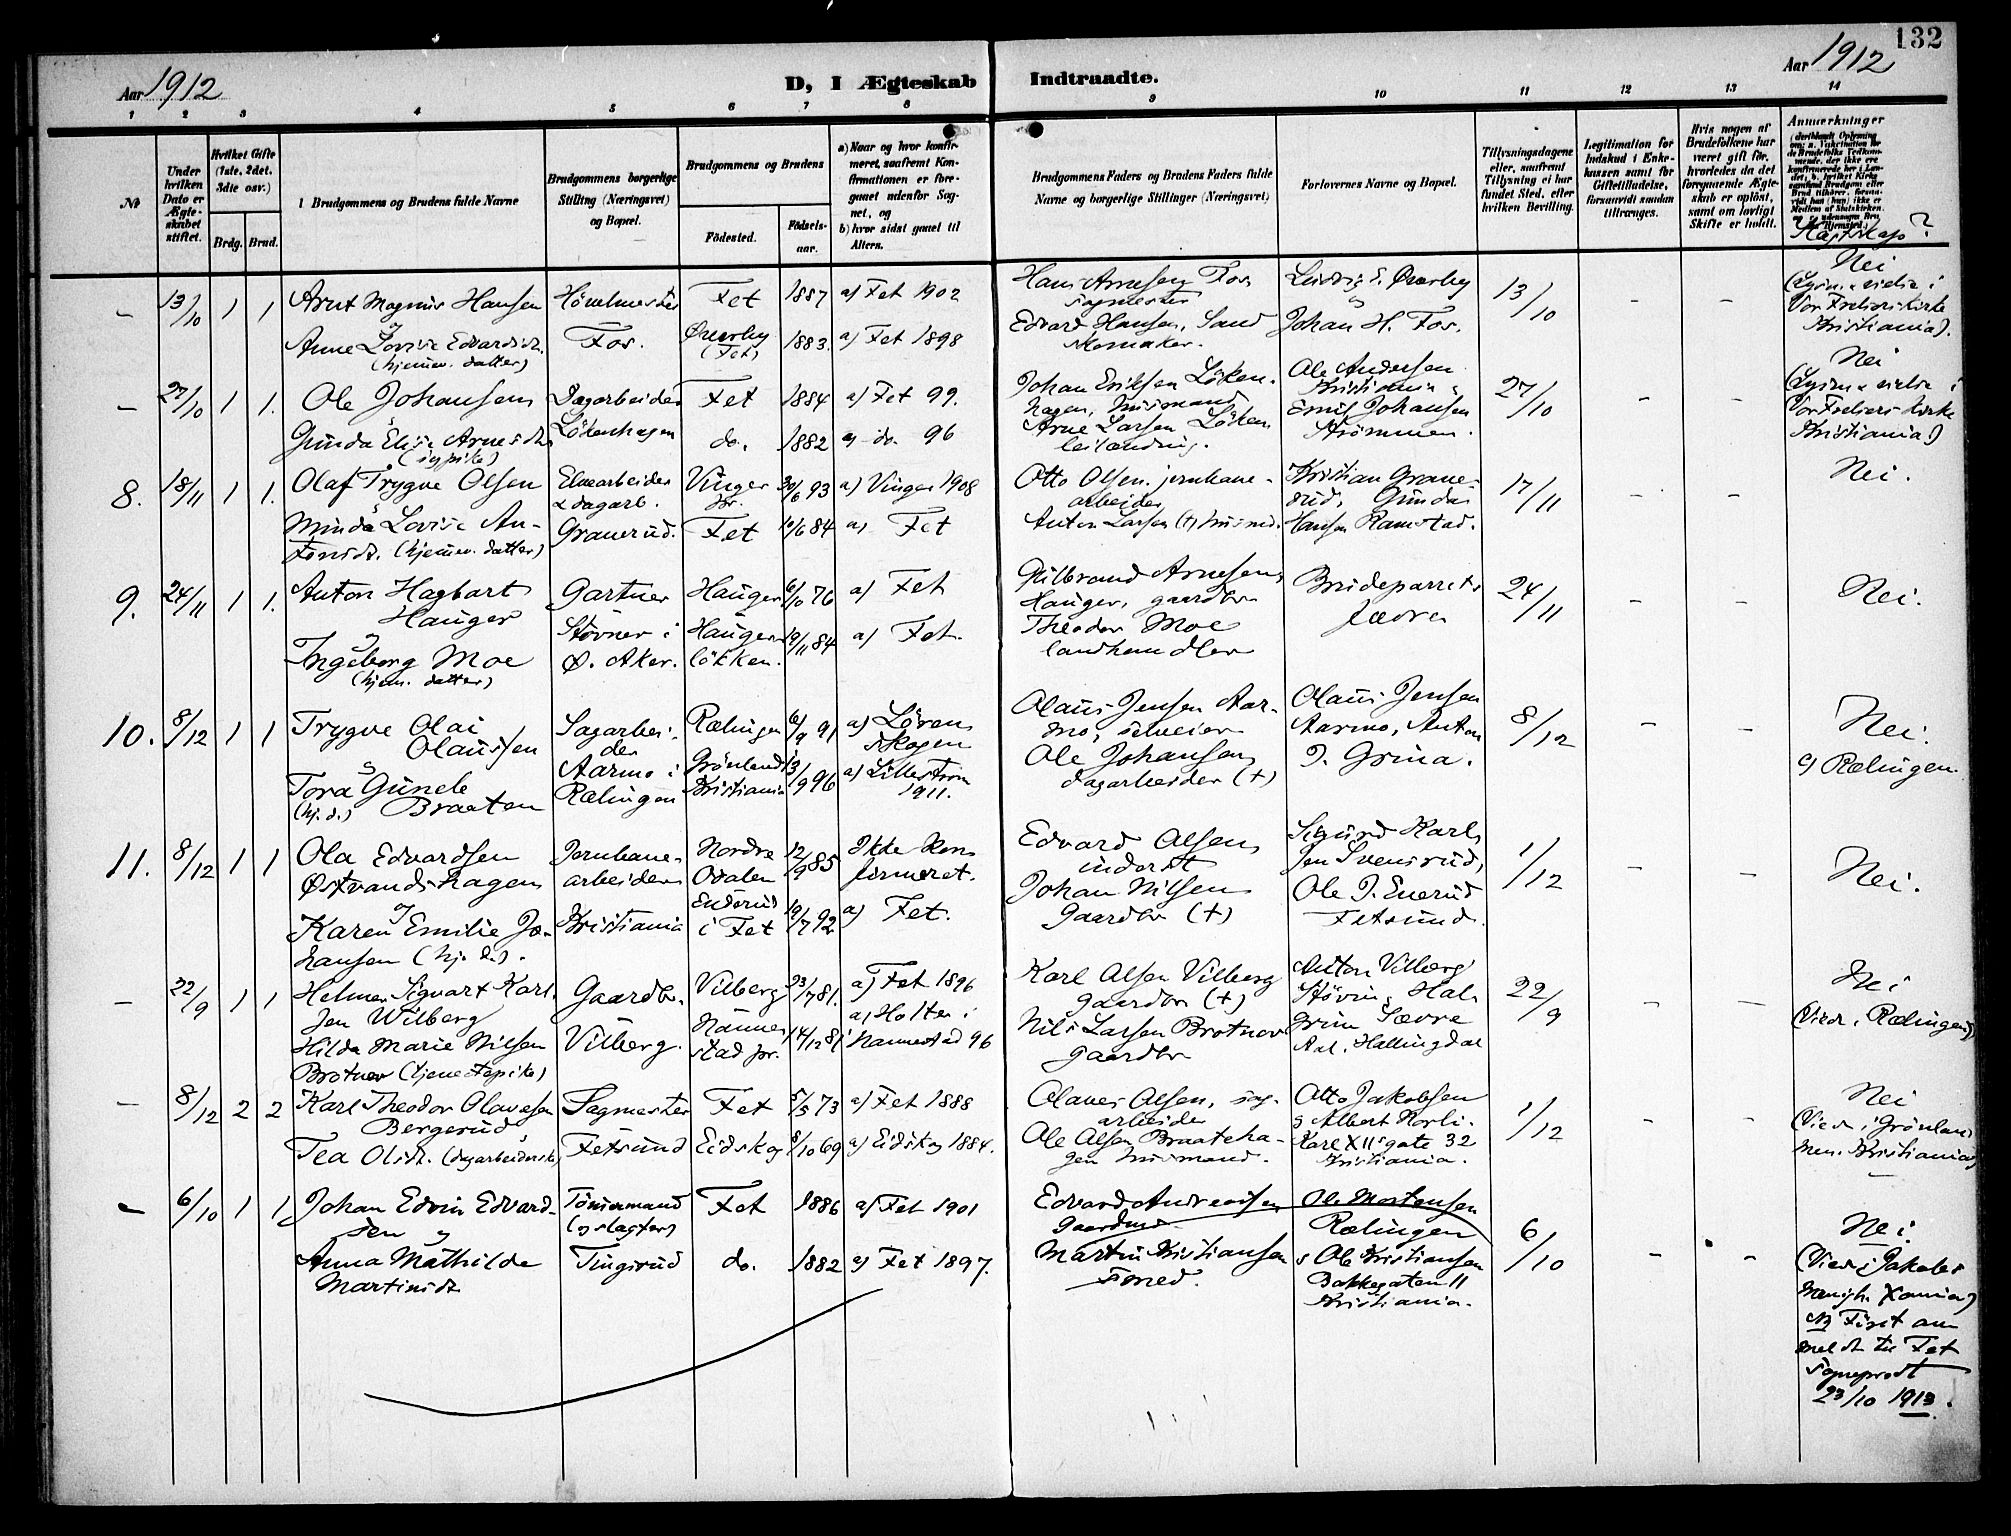 132
Aar 1912
D, I Ægteskab Indtraadte.
Aar 1912
1 2 3 4 5 6 7 8 9 10 11 12 13 14
No
Under hvilken Dato er Ægteskabet stiftet.
Hvilket Gifte (1ste, 2det. 3die osv.)
Brdg. Brud.
Brudgommens og Brudens fulde Navne
Brudgommens borgerlige Stilling (Næringsvei) og Bopæl.
Brudgommens og Brudens
Fødested.
Fødselsaar.
a) Naar og hvor konfirmeret, saafremt Konfirmationen er foregaaet udenfor Sognet, og
b) hvor sidst gaaet til Alters.
Brudgommens Faders og Brudens Faders fulde Navne og borgerlige Stillinger (Næringsvei)
Forlovernes Navne og Bopæl.
Tillysningsdagene eller, saafremt Tillysning ei har fundet Sted, efter hvilken Bevilling.
Legitimation for Indskud i Enkekassen samt for Giftetilladelse, forsaavidt saadan tiltrænges.
Hvis nogen af Brudefolkene har været gift før, hvorledes da det foregaaende Ægteskab er opløst, samt om lovligt Skifte er holdt.
Anmerkninger
– 13/10 1 1 Arnt Magnus Hansen
Fet 1887 a) Fet 1902
Hans Arnesen Fos, sagmester
Ludvig E. Øverby
13/10 – – Nei
og Anne Lovise Edvardsdt. (hjemev. datter)
Fos.
Øverby (Fet) 1883. a) Fet 1898
Edvard Hansen, Sand skomaker.
Johan H. Fos.
Vor Frelsers Kirke Kristiania).
– 27/10 1 1. Ole Johansen
Dagarbeider Løkenhagen
Fet 1884 a) Fet 99.
Johan Eriksen Løkenhagen, husmand
Ole Andersen Kristiania
27/10 – – Nei
Gunda Elise Arnesdt. (sypike)
do. 1882 a) do. 96
Arne Larsen Løken leilending.
Emil Johansen Strømmen.
Vor Frelsers Kirke Kristiania)
8. 18/11 1 1. Olaf Trygve Olsen
Elvearbeider & dagarb. Grauerud.
Vinger pr. 30/6 93 a) Vinger 1908
Otto Olsen. jernbanearbeider
17/11 – – Nei.
Minda Lovise Antonsdt. (hjemev. datter)
Fet 10/6 84 a) Fet
Anton Larsen (+) husmd.
Hansen Ramstad.
9. 24/11 1 1. Anton Hagbart Hauger
Gartner
Hauger 6/10 76 a) Fet
Hilbrand Arnesen Hauger, gaardbr
Brudeparrets fædre
24/11 – – Nei.
og Ingeborg Moe (hjem. datter)
Støvner i Ø. Aker.
Haugerløkken. 19/11 84 a) Fet.
Theodor Moe landhandler
10. 8/12 1 1 Trygve Olai Olaussen
Sagarbeider Aarmo i Rælingen
Rælingen 6/9 91 a) Lørenskogen
Olaus Jensen Aarmo, selveier
Olaus Jensen Aarmo, Anton J. Grina.
8/12 – – Nei.
og Tora Gunele Braaten (hj. d.)
Grønland Kristiania 13/9 96 a) Lillestrøm 1911.
Ole Johansen dagarbeider (+)
Rælingen.
11. 8/12 1 1 Ola Edvardsen Østvandshagen
Jernbanearbeider Kristiania
Nordre Odalen 12/9 85 Ikke konfirmeret.
Edvard Olsen inderst
Sigurd Karlsen Svensrud,
1/12 – – Nei.
og Karen Emilie Johansen (hj. d.).
Enderud i Fet 19/7 92 a) Fet.
Johan Nilsen Gaardbr (+)
Ole J. Enerud Fetsund.
– 22/9 1 1 Helmer Sigvart Karlsen Wilberg
Gaardbr. Vilberg.
Vilberg 23/7 81. a) Fet 1896
Karl Olsen Vilberg Gaardbr (+)
Anton Vilberg
22/9 – – Nei
Hilda Marie Nilsen Brotnov (tjenestepike)
Nannestad pr. 14/12 81 a) Holter i Nannestad 96
Nils Larsen Brotnov gaardbr
Aal. Hallingdal
(Viede i Rælingen)
– 8/12 2 2 Karl Theodor Olavesen Bergerud,
Sagmester Fetsund
Fet 5/5 73 a) Fet 1888
Olaves Olsen, sagarbeider
Otto Jakobsen & Albert Horli.
1/12 – – Nei
Tea Olsdt.
Eidskog 8/10 69 a) Eidskog 1884.
Ole Olsen Braatehagen husmand.
Karl XIIs gate 32 Kristiania.
– 6/10 1 1 Johan Edvin Edvardsen og
Tømmermand (og slagter) Tingsrud
Fet 1886 a) Fet 1901
Edvard Andreassen
Ole Mortensen Rælingen
6/10 – – Nei
Anna Mathilde Martinsdt
do. 1882 a) Fet 1897.
Martin Kristiansen
& Ole Kristiansen Bakkegaten 11 Kristiania.
NB Først anmeldt til Fet Sogneprest
23/10 1913.